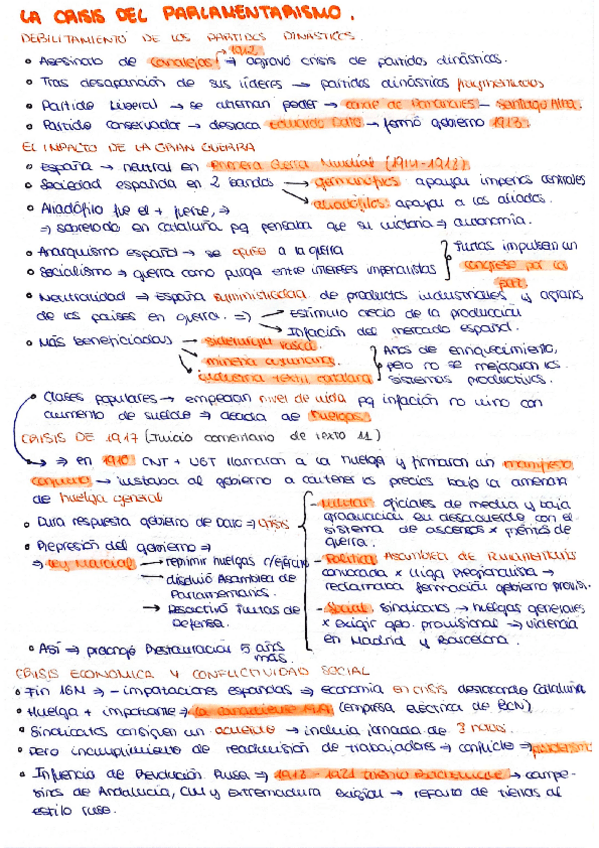 LA CRISIS DEL PARLAMENTARISMO.
DEBILITAMIENTO DE LOS PARTIDOS DINÁSTICOS
1912
• Asesinato de Canalejas → agravó crisis de partidos dinásticos.
• Tras desaparición de sus líderes → partidos dinásticos fragmentados
• Partido Liberal → se alternan poder → conde de Romanones - Santiago Alba.
• Partido Conservador → destaca Eduardo Dato → formó gobierno 1913.
EL IMPACTO DE LA GRAN GUERRA
• España → neutral en Primera Guerra Mundial (1914-1918)
• Sociedad española en 2 bandos → germanófilos: apoyan imperios centrales
→ aliadófilos: apoyan a los aliados.
• Aliadófilo fue el + fuerte, ⇒
⇒ sobretodo en Cataluña pq pensaba que su victoria ⇒ autonomía.
• Anarquismo español → se opuso a la guerra
• Socialismo → guerra como purga entre intereses imperialistas
} Juntas impulsan un
congreso por la
paz.
• Neutralidad → España suministradora de productos industriales y agrarios
de los países en guerra. ⇒ → Estímulo crecio de la producción
→ Inflación del mercado español.
• Más beneficiadas → siderurgia vasca.
→ minería asturiana
→ industria textil catalana
} Años de enriquecimiento,
pero no se mejoraron los
sistemas productivos.
• Clases populares → empeoran nivel de vida pq inflación no vino con
aumento de sueldo ⇒ oleada de huelgas.
CRISIS DE 1917 (Inicio comentario de texto 11)
→ ⇒ en 1916 CNT + UGT llamaron a la huelga y firmaron un manifiesto
conjunto → instaba al gobierno a contener los precios bajo la amenaza
de huelga general
• Dura respuesta gobierno de Dato → crisis
- Militar: oficiales de media y baja
graduación en desacuerdo con el
sistema de ascensos x méritos de
guerra.
- Política: Asamblea de Parlamentarios
convocada x Lliga Regionalista →
reclamaba formación gobierno provisi.
- Social: sindicatos → huelgas generales
x exigir gob. provisional → violencia
en Madrid y Barcelona.
• Represión del gobierno ⇒
⇒ Ley Marcial → reprimir huelgas c/ejército
→ disolvió Asamblea de
Parlamentarios.
→ Desactivó Juntas de
Defensa.
• Así → prolongó Restauración 5 años
más.
CRISIS ECONÓMICA Y CONFLICTIVIDAD SOCIAL
• Fin 1GM ⇒ - impotaciones españolas ⇒ economía en crisis destacando Cataluña
• Huelga + importante ⇒ La Canadiense (empresa eléctrica de BCN)
• Sindicatos consiguen un acuerdo → incluía jornada de 8 horas.
• Pero incumplimiento de readmisión de trabajadores → conflicto →
• Influencia de Revolución Rusa ⇒ 1918 - 1921 Trienio Bolchevique → campe-
sinos de Andalucía, CLM y Extremadura exigían → reparto de tierras al
estilo ruso.